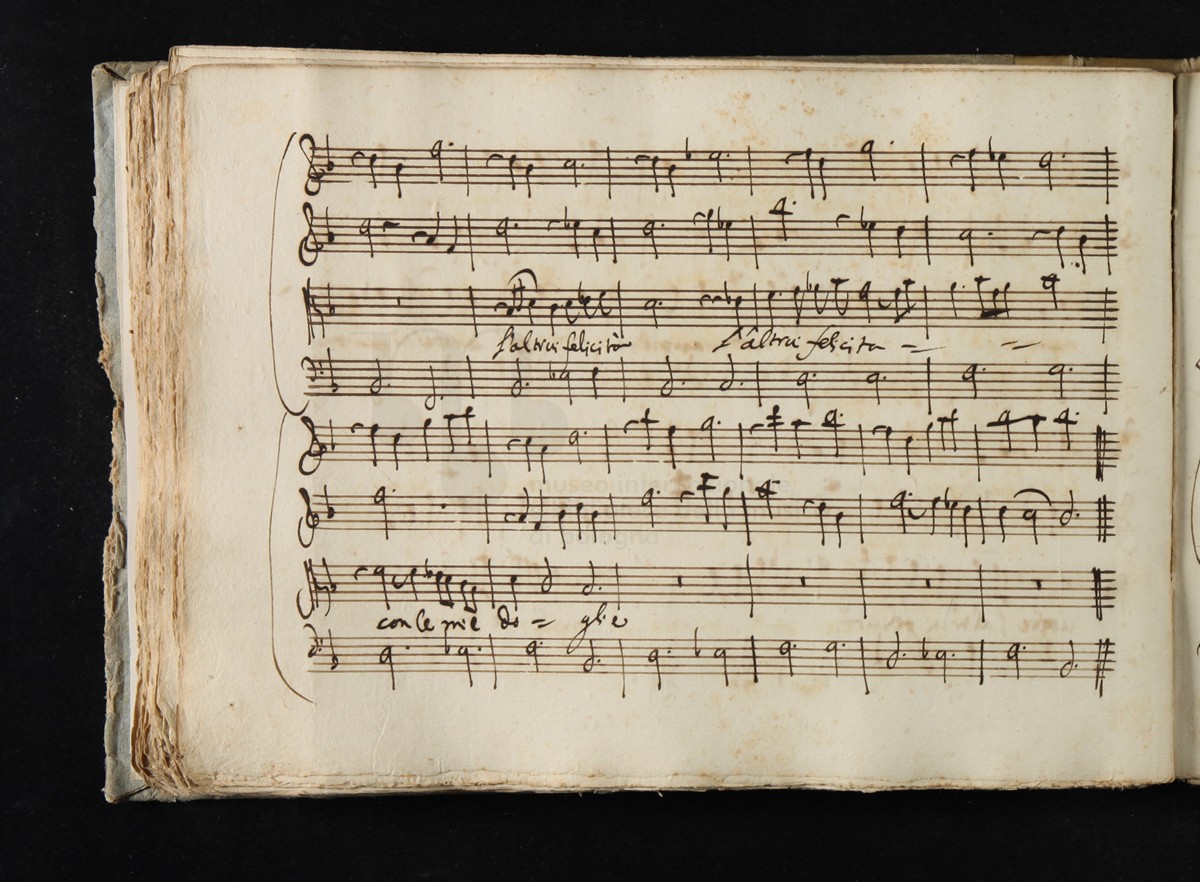 l'altrui felicità l'altrui felicita =
con le mie do = glie
museo internazionale
di bologna